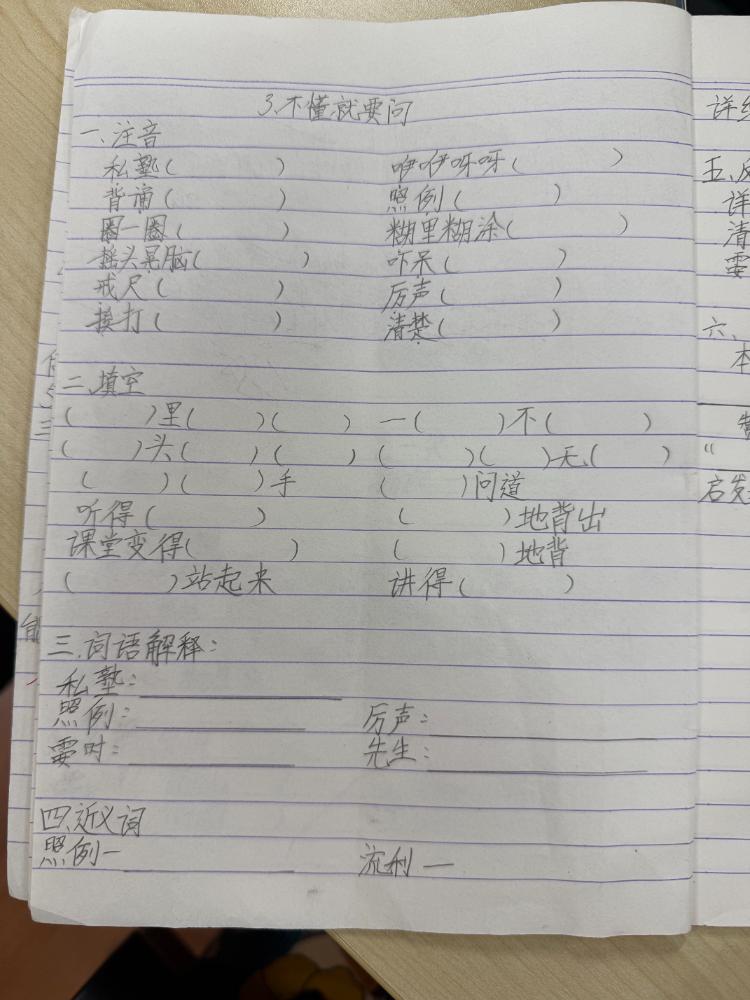 3.不懂就要问
一、注音
私塾( ) 咿咿呀呀( )
背诵( ) 照例( )
圈一圈( ) 糊里糊涂( )
摇头晃脑( ) 吓呆( )
戒尺( ) 厉声( )
挨打( ) 清楚( )
二、填空
( )里( )( ) 一( )不( )
( )头( )( ) ( )( )无( )
( )( )手 ( )问道
听得( ) ( )地背出
课堂变得( ) ( )地背
( )站起来 讲得( )
三.词语解释:
私塾:
照例: 厉声:
霎时: 先生:
四.近义词
照例— 流利—
五、
详
清
霎
六、
本
"
启发